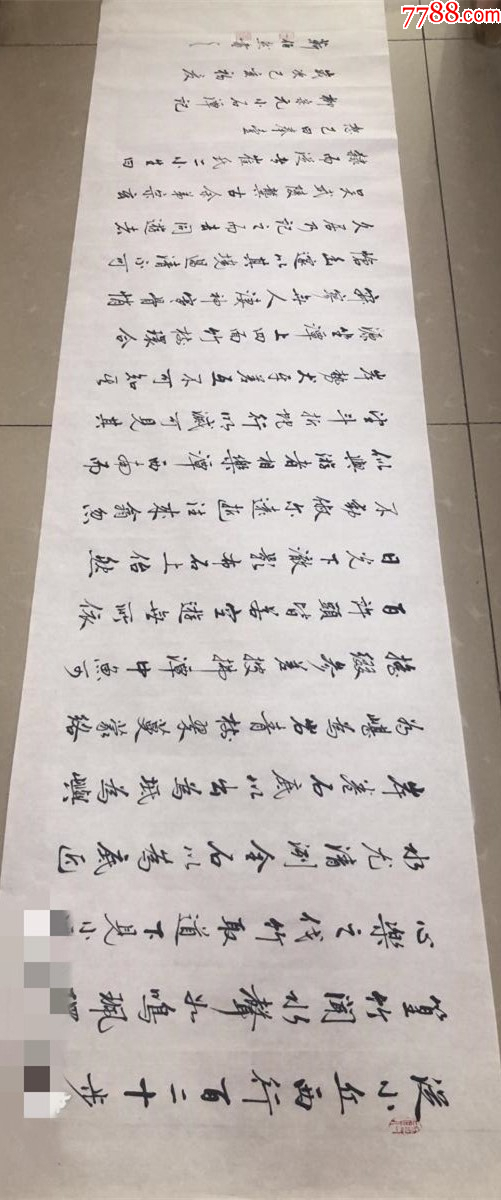 7788.com
從小丘西行百二十步
篁竹聞水聲如鳴珮
心樂之伐竹取道下見小
水尤清洌全石以為底近
岸卷石底以出為坻為嶼
為嵁為岩青樹翠蔓蒙絡
搖綴參差披拂潭中魚可
百許頭皆若空遊無所依
日光下澈影布石上佁然
不動俶尔遠逝往來翕忽
似與游者相樂潭西南而
望斗折蛇行以滅可見其
岸勢犬牙差互不可知其
源坐潭上四面竹樹環合
寂寥無人淒神寒骨悄
愴幽邃以其境過清不可
久居乃記之而去同遊者
吳武陵龔古余弟宗玄
隸而從者崔氏二小生曰
恕己曰奉壹
柳宗元小石潭記
歲次己亥